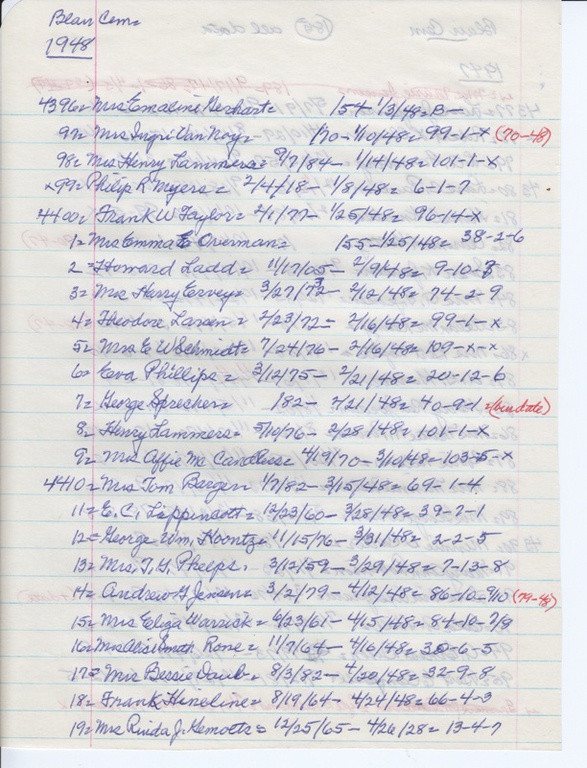 Blair Cem=
1948
4396= Mrs Emaline Gerhart= 154- 1/3/48= B—
97= Mrs Ingri Van Noy= 170- 1/10/48= 99-1-x (70-48)
98= Mrs Henry Lammers= 9/7/84- 1/14/48= 101-1-x
x99= Philip R Myers= 2/4/18- 1/8/48= 6-1-7
4400= Frank W Taylor= 2/1/77- 1/25/48= 96-14-x
1= Mrs Emma E Overman= 155- 1/25/48= 38-2-6
2= Howard Ladd= 11/17/05- 2/9/48= 9-10-3
3= Mrs Harry Cervey= 3/27/72- 2/12/48= 74-2-9
4= Theodore Larsen= 2/23/72= 2/16/48= 99-1-x
5= Mrs E W Schmidt= 7/24/76- 2/16/48= 109-x-x
6= Eva Phillips= 3/12/75- 2/21/48= 20-12-6
7= George Sprecher= 182- 2/21/48= 40-9-1= (bur date)
8= Henry Lammers= 5/10/76- 2/28/48= 101-1-x
9= Mrs Affie Mc Candless= 4/19/70- 3/10/48= 103-5-x
4410= Mrs Tom Barger= 1/7/82- 3/15/48= 69-1-4
11= E. C. Lippencott= 12/23/60- 3/28/48= 39-7-1
12= George Wm. Koontz= 11/15/76- 3/31/48= 2-2-5
13= Mrs. T. G. Phelps. 3/12/59- 3/29/48= 7-13-8
14= Andrew G Jensen= 3/2/79- 4/12/48= 86-10-9/10 (79-48)
15= Mrs Eliza Warrick= 6/23/61- 4/15/48= 84-10-7/8
16= Mrs Alice Smith Rone= 11/7/64- 4/16/48= 30-6-5
17= Mrs Bessie Daub= 8/3/82- 4/20/48= 32-9-8
18= Frank Hineline= 8/19/64- 4/24/48= 66-4-3
19= Mrs Rinda J. Gemoets= 12/25/65- 4/26/28= 13-4-7